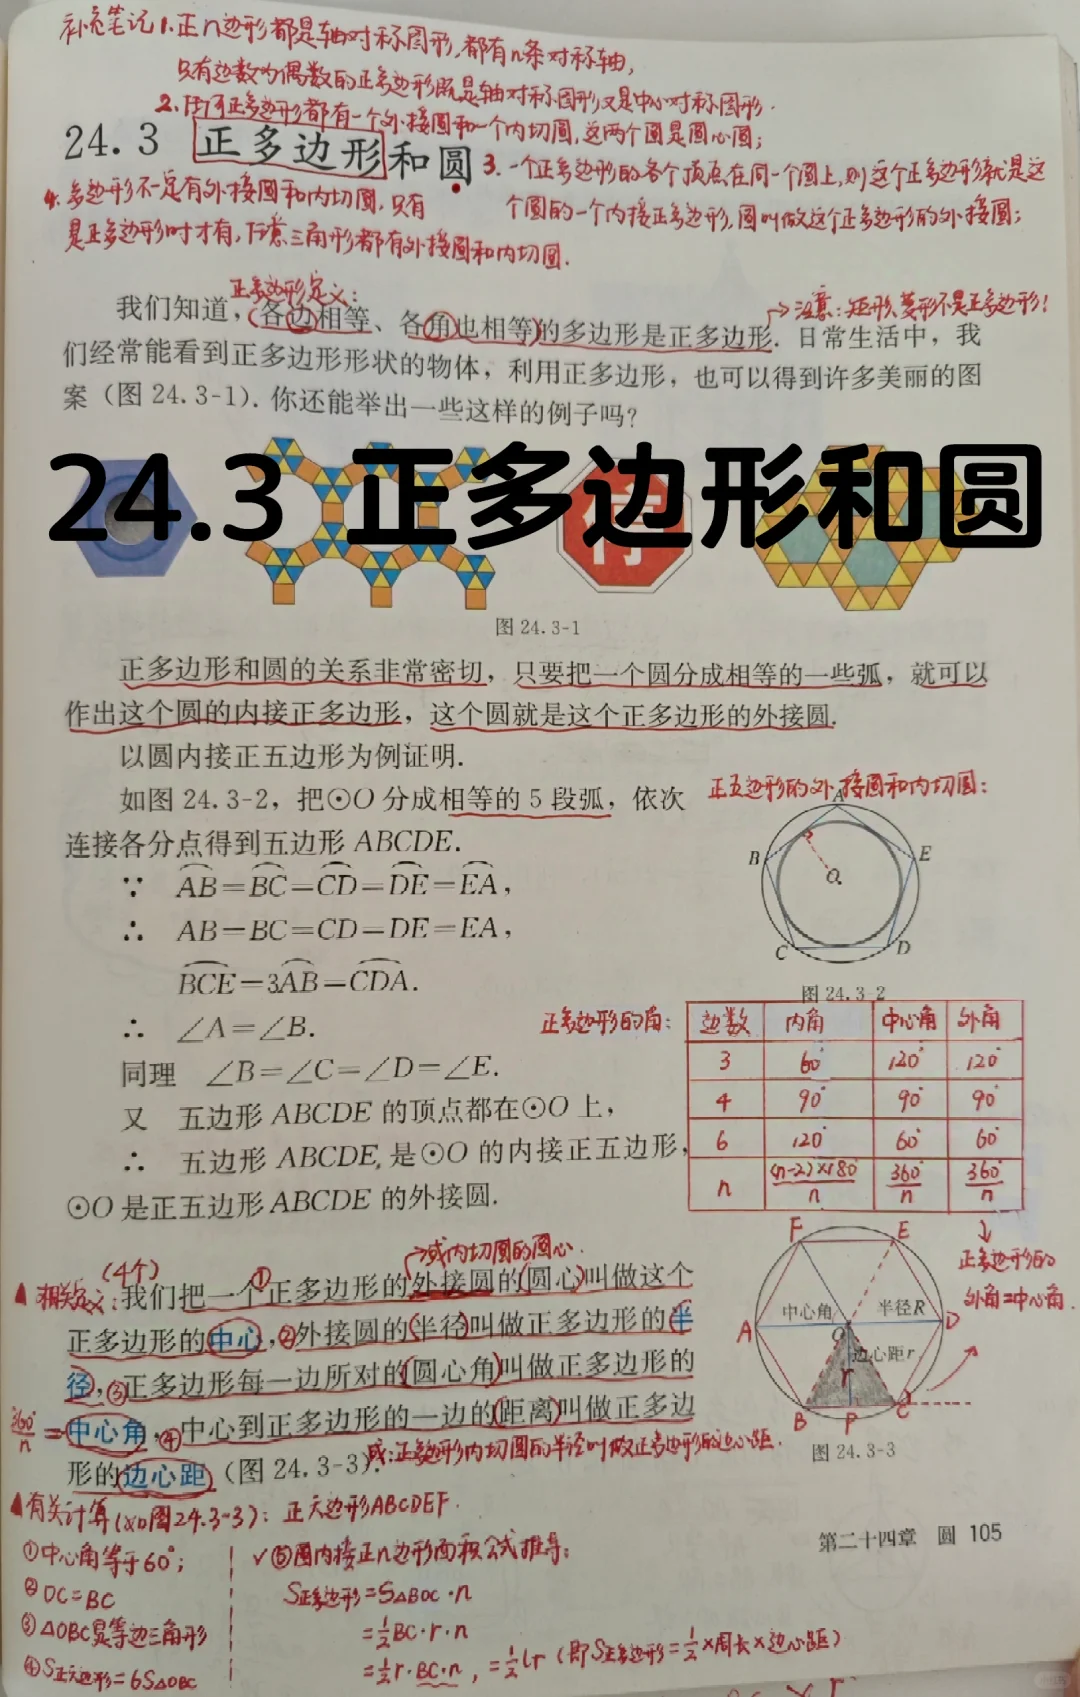 补充笔记1.正n边形都是轴对称图形,都有n条对称轴,
只有边数为偶数的正多边形既是轴对称图形又是中心对称图形.
2.任何正多边形都有一个外接圆和一个内切圆,这两个圆是同心圆;
24.3 正多边形和圆
3.一个正多边形的各个顶点在同一个圆上,则这个正多边形就是这
个圆的一个内接正多边形,圆叫做这个正多边形的外接圆;
4.多边形不一定有外接圆和内切圆,只有
是正多边形时才有,任意三角形都有外接圆和内切圆.
正多边形定义:
→注意:矩形、菱形不是正多边形!
我们知道,(各边相等、各角也相等)的多边形是正多边形.日常生活中,我
们经常能看到正多边形形状的物体,利用正多边形,也可以得到许多美丽的图
案(图 24.3-1).你还能举出一些这样的例子吗?
24.3 正多边形和圆
停
图 24.3-1
正多边形和圆的关系非常密切,只要把一个圆分成相等的一些弧,就可以
作出这个圆的内接正多边形,这个圆就是这个正多边形的外接圆.
以圆内接正五边形为例证明.
如图 24.3-2,把⊙O 分成相等的 5 段弧,依次
连接各分点得到五边形 ABCDE.
∵ AB=BC=CD=DE=EA,
∴ AB=BC=CD=DE=EA,
BCE=3AB=CDA.
∴ ∠A=∠B.
同理 ∠B=∠C=∠D=∠E.
又 五边形 ABCDE 的顶点都在⊙O 上,
∴ 五边形 ABCDE 是⊙O 的内接正五边形,
⊙O 是正五边形 ABCDE 的外接圆.
正五边形的外接圆和内切圆:
A
B E
O
C D
图 24.3-2
正多边形的角:
边数 内角 中心角 外角
3 60° 120° 120°
4 90° 90° 90°
6 120° 60° 60°
n (n-2)×180°/n 360°/n 360°/n
↓
正多边形的
外角=中心角.
→或内切圆的圆心.
▲相关定义:(4个)
我们把一个①正多边形的外接圆的(圆心)叫做这个
正多边形的中心,②外接圆的(半径)叫做正多边形的半
径,③正多边形每一边所对的(圆心角)叫做正多边形的
360°/n=中心角,④中心到正多边形的一边的(距离)叫做正多边
形的边心距(图 24.3-3).
或:正多边形内切圆的半径叫做正多边形的边心距.
F E
中心角 半径R
A O D
边心距r
r
B P C
图 24.3-3
▲有关计算(如图24.3-3):正六边形ABCDEF.
①中心角等于60°;
②OC=BC
③△OBC是等边三角形
④S正六边形=6S△OBC
✓⑤圆内接正n边形面积公式推导:
S正多边形=S△BOC·n
=1/2BC·r·n
=1/2r·BC·n,=1/2lr(即S正多边形=1/2×周长×边心距)
第二十四章 圆 105